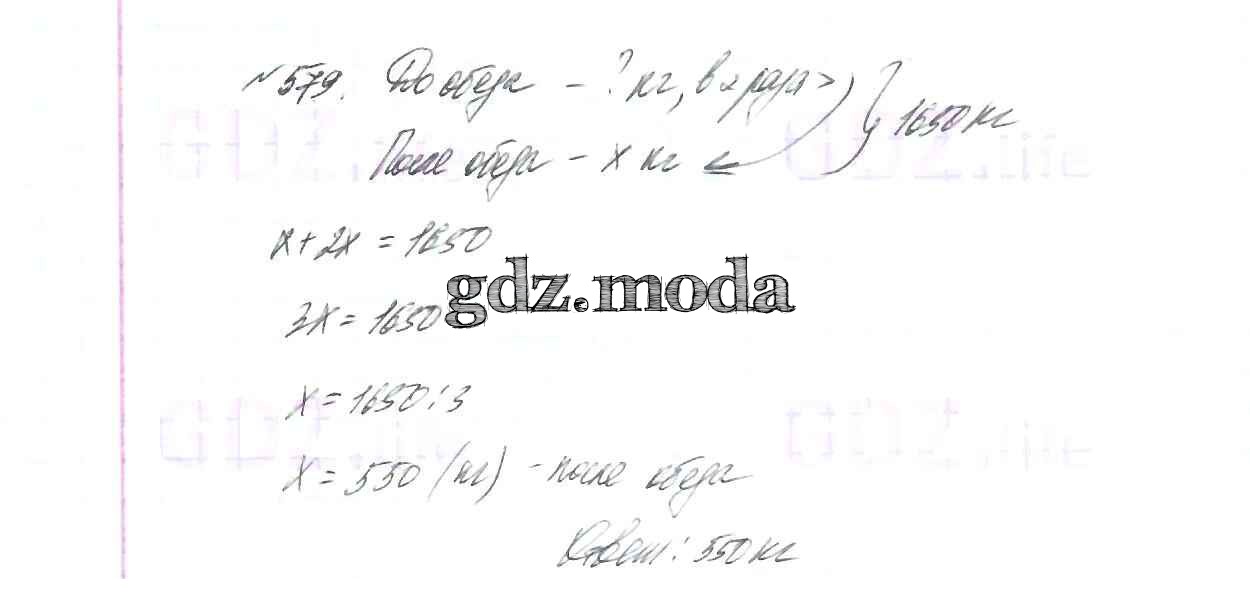 №579. До обеда – ? кг, в 2 раза > 1650 кг
После обеда – x кг
x + 2x = 1650
3x = 1650
x = 1650 : 3
x = 550 (кг) – после обеда
Ответ: 550 кг
gdz.moda
GDZ.life
GDZ.life
GDZ.life
GDZ.life